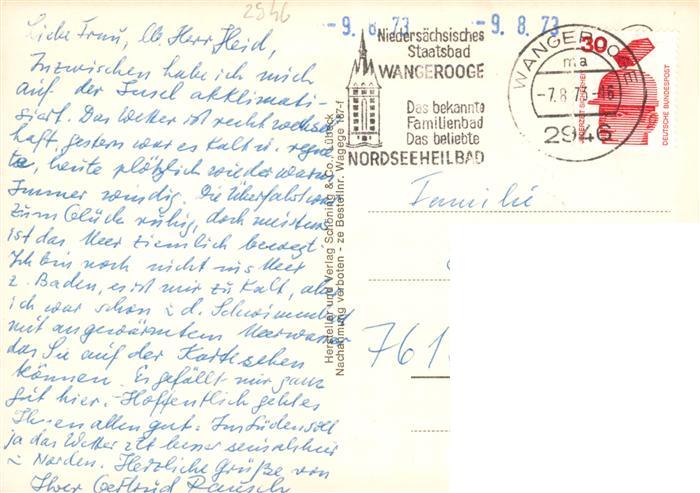 2946
Liebe Frau, lb. Herr Heid,
Inzwischen habe ich mich
auf der Insel akklimati-
siert. Das Wetter ist recht wechsel
haft, gestern war es kalt u. regne
te, heute plötzlich wieder warm
Immer windig. Die Überfahrt war
zum Glück ruhig, doch meistens
ist das Meer ziemlich bewegt.
Ich bin noch nicht ins Meer
z. Baden, es ist mir zu kalt, aber
ich war schon i. d. Schwimmbad
mit angewärmtem Meerwasser
das Sie auf der Karte sehen
können. Es gefällt mir ganz
gut hier. Hoffentlich geht es
Ihnen allen gut. Im Süden soll
ja das Wetter z. Zt. besser sein als hier
i. Norden. Herzliche Grüße von
Ihrer Gertrud Rausch
Hersteller und Verlag Schöning & Co., Lübeck
Nachahmung verboten - ze Bestellnr. Wagege 187-f
-9. 8. 73
-9. 8. 73
Niedersächsisches
Staatsbad
WANGEROOGE
Das bekannte
Familienbad
Das beliebte
NORDSEEHEILBAD
WANGEROOGE
ma
-7.8.73-16
2946
30
JEDERZEIT SICHERHEIT
DEUTSCHE BUNDESPOST
Familie
761